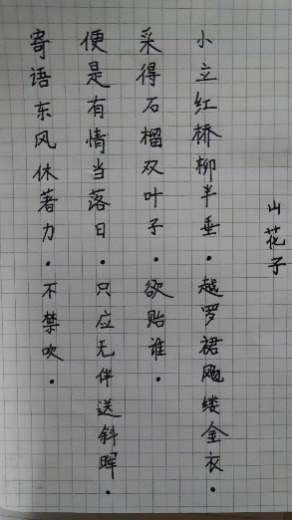 山花子
小立红桥柳半垂.越罗裙飏缕金衣.
采得石榴双叶子.欲贻谁.
便是有情当落日.只应无伴送斜晖.
寄语东风休著力.不禁吹.